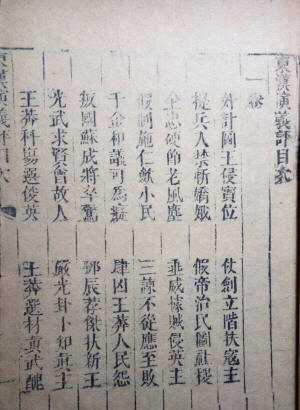 東漢演義評目录
一卷
奸計圖王侵寶位　仗劍立階扶寇主
提兵入禁斬嬌娥　假帝治民圖社稷
全忠硬節老風塵　乖威據賊侵英主
假制施仁　小民　三諫不從應至敗
千金和議可為　　肆凶王莽人民怨
叛國蘇成將卒驚　　辰荐傑扶新王
光武求賢會故人　嚴光卦卜知真主
王莽科場選俊英　王莽選材真武醜
東漢演義評目录